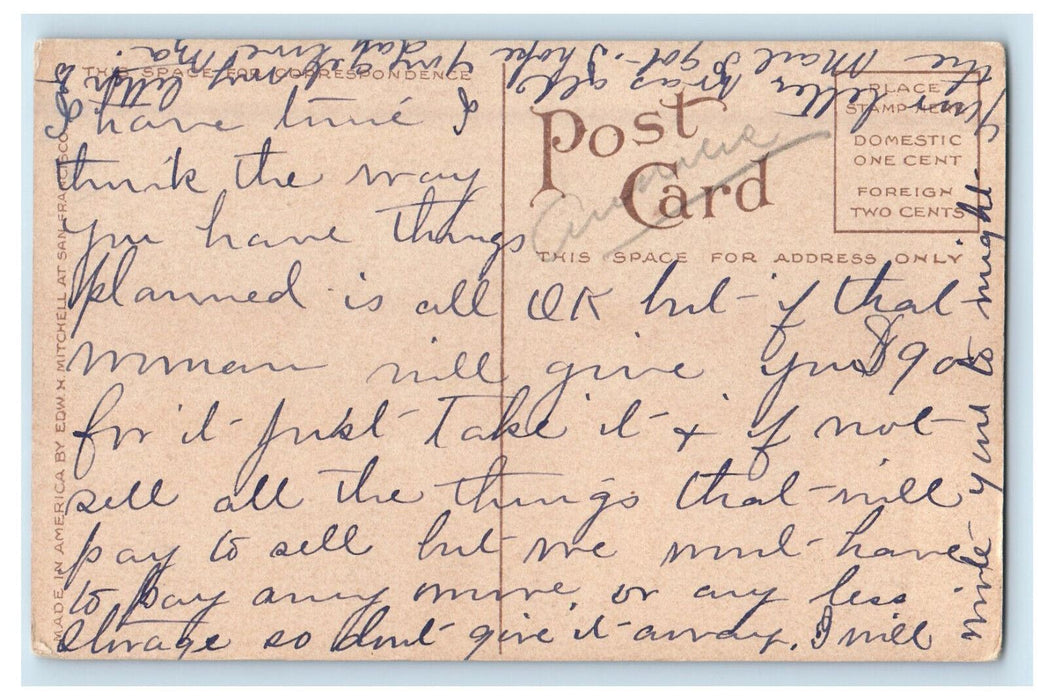 THIS SPACE FOR CORRESPONDENCE
Post
Card
PLACE
STAMP HERE
DOMESTIC
ONE CENT
FOREIGN
TWO CENTS
THIS SPACE FOR ADDRESS ONLY
MADE IN AMERICA BY EDW. H. MITCHELL AT SAN FRANCISCO
have time I
think the way
you have things
planned is all OK but if that
woman will give you $90
for it just take it & if not
sell all the things that will
pay to sell but we wont have
to pay any more or any less
storage so dont give it away. I will
write you to night
Your letter was all
the Mail I got. I hope